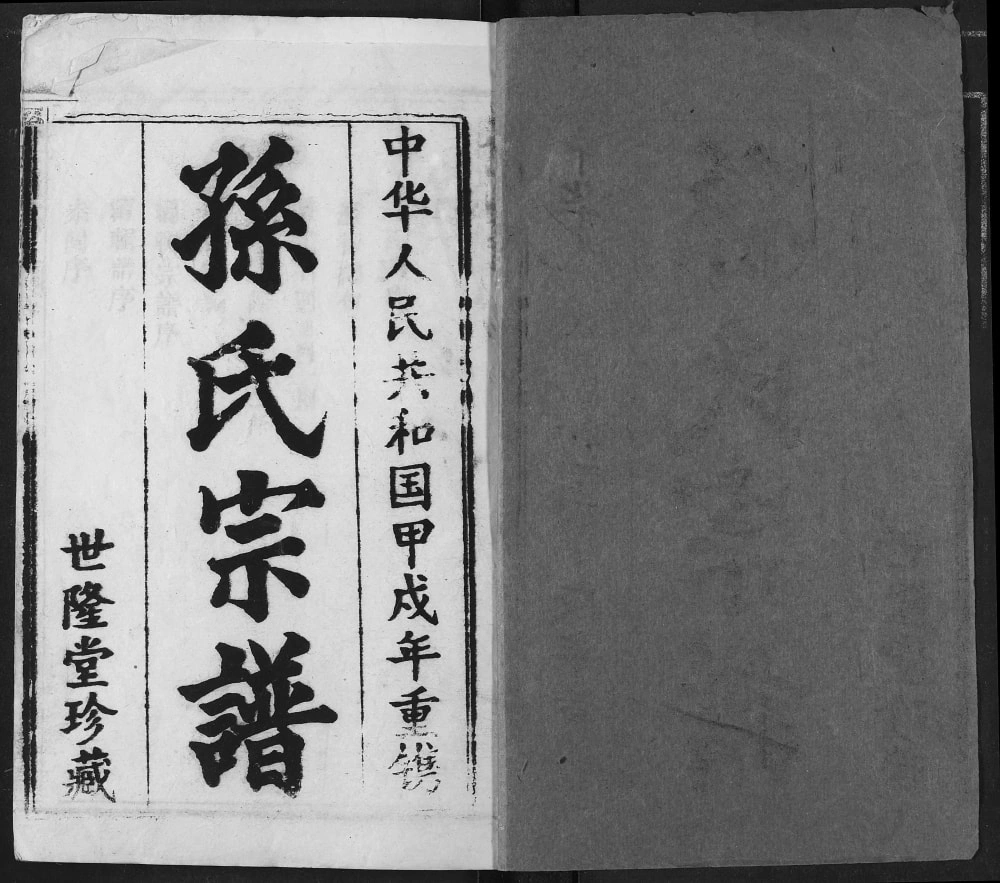 中华人民共和国甲戌年重镌
孫氏宗譜
世隆堂珍藏